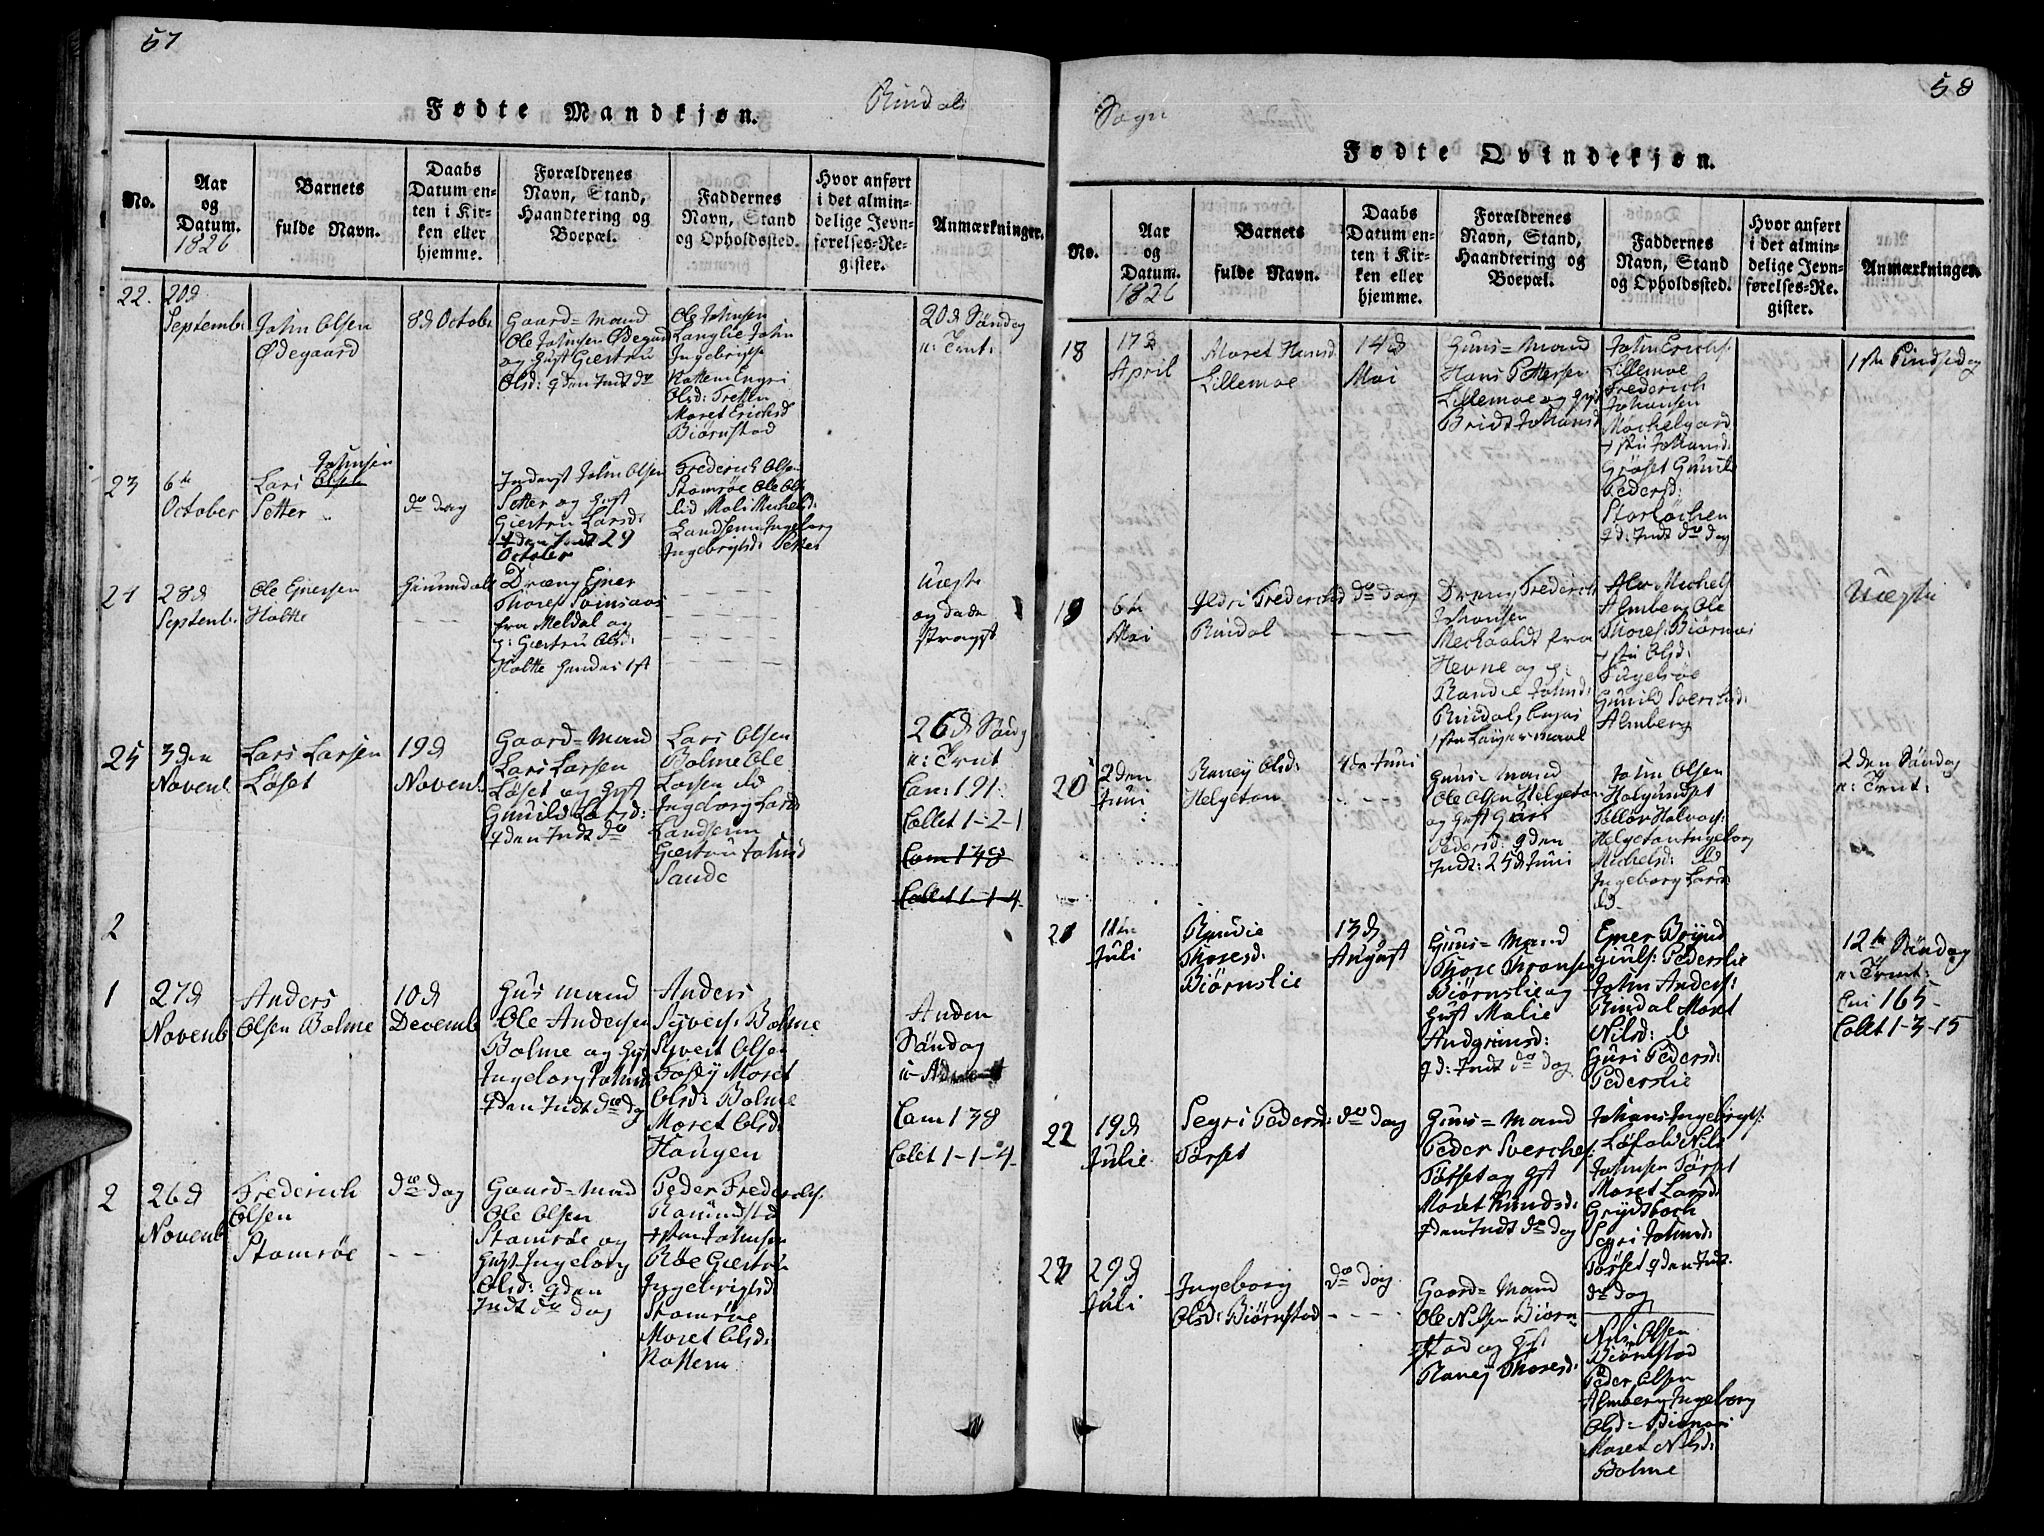 57
Fødte Mandkjøn.
Rindals
No.
Aar
og
Datum.
1826
Barnets
fulde Navn.
Daabs
Datum en-
ten i Kir-
ken eller
hjemme.
Forældrenes
Navn, Stand,
Haandtering og
Boepæl.
Faddernes
Navn, Stand
og Opholdssted.
Hvor anført
i det almin-
delige Jevn-
førelses-Re-
gister.
Anmærkninger.
22.
20d
Septembr
John Olsen
Ødegaard
8d October
Gaard=Mand
Ole Johnsen Ødegaard
og Hust Giertru
Olsd:
Ole Johnsen
Langlie John
Ingebrigts
Rottem Engri
Olsd: Tretten
Moret Erichsd
Biørnstad
20d Søndag
n: Trnt:
23
6te
October
Lars Johnsen
Olsen
Setter
do dag
Inderst John Olsen
Setter og Hust
Giertru Larsd:
29
October
Frederich Olsen
Stomrøe Ole Ols
lid Mali Michelsd:
Landsem Ingeborg
Ingebrigtsd: Setter
24
28d
Septemb.
Ole Enersen
Holtte
Dræng Ener
fra Meldal og
p: Giertru Olsd:
Holtte hendes 1st
Uægte
25
3den
Novemb.
Lars Larsen
Løset
19d
Novemb.
Gaard=Mand
Lars Larsen
Løset og Hust
Gunild Larsd:
Lars Olsen
Bolme Ole
Larsen ibd
Ingeborg Larsd
Landsem
Giertru Johnsd
Sande
26d Sønd
n: Trnt
Com 191.
Collet 1-2-1
Com 148
Collet 1-1-4
2
1
27d
Novemb
Anders
Olsen Bolme
10d
Decemb
Hus mand
Ole Andersen
Bolme og Hust
Ingeborg Johnsd
Anders
Syvers: Bolme
Syvert Olsen
Moret
Olsd: Bolme
Moret Olsd:
Hougen
Anden
Søndag
Com 138
Colet 1-1-4
2
26d
Novemb
Frederich
Olsen
Stomrøe
do dag
Gaard=Mand
Ole Olsen
Stomrøe og
Hust Ingeborg
Olsd: qden
Indt do dag
Peder Frederichs:
Romundstad
Johnsen
Røe Giertru
Ingebrigtsd
Stomrøe
Moret Olsd:
Rottem
58
Sogn
Fødte Qvindekjøn.
No.
Aar
og
Datum.
1826
Barnets
fulde Navn.
Daabs
Datum en-
ten i Kir-
ken eller
hjemme.
Forældrenes
Navn, Stand,
Haandtering og
Boepæl.
Faddernes
Navn, Stand
og Opholdssted.
Hvor anført
i det almin-
delige Jevn-
førelses-Re-
gister.
Anmærkninger.
18
17d
April
Moret Hansd
Lillemoe
14d
Mai
Huus=Mand
Hans Pettersen
Lillemoe og Hust
Bridt Johansd
John Erichs:
Lillemoe
Frederich
Johansen
Johansd:
Grøset Gunild
Pedersd:
qd: Indt do dag
1ste Pindsedag
19
6te
Mai
Jldri Frederichsd
Rindal
do dag
Dreng Frederich
Johansen
fra
Hevne og p:
Randie Johnsd:
Rindal, begges
1ste Leiermaal
Almberg Ole
Thores: Biørnaas
Olsd:
Gunild Sverchsd:
Almberg
Uægte
20
2den
Juni
Raney Olsd:
Helgeton
4de Juni
Huus=Mand
Ole Olsen Helgeton
og Hust Guri
Pedersd: qden
Indt: 25d Juni
John Olsen
Helgeton Ingeborg
Michelsd: ibd
Ingeborg Larsd:
ibd.
2den Søndag
n: Trnt:
21
11te
Juli
Randie
Thoresd:
Biørnslie
13d
August
Huus=Mand
Thore
Biørnslie og
Hust Malie
Andgrimsd:
qd: Indt do dag
Ener Brynd
Pederslie
John Anders:
Rindal Moret
Nilsd:
Guri Pedersd:
Pederslie
12te Søndag
n: Trnt:
165
Colet 1-3-15
22
19d
Julie
Segri Pedersd:
Tørset
do dag
Huus=Mand
Peder Sverches:
Tørset og Hst
Moret Knudsd:
qden Indt do dag
Johans Ingebrigts:
Løfald Nils
Johnsen Tørset
Moret Larsd:
Segri Johnsd:
Tørset qden Indt.
do dag
29d
Juli
Ingeborg
Olsd: Biørnstad
do dag
Gaard=Mand
Ole Nilsen Biørn
stad og Hst
Raney Thoresd:
Nils Olsen
Biørnstad
Peder Olsen
Almberg Ingeborg
Olsd:
Moret Nilsd:
Bolme